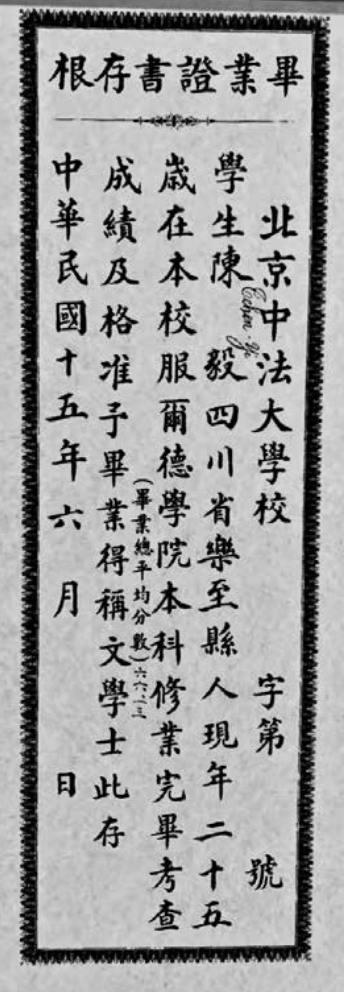 畢業證書存根
北京中法大學校 字第 號
Tchen Yi
學生陳毅四川省樂至縣人現年二十五
歲在本校服爾德學院本科修業完畢考查
(畢業總平均分數)六六.二三
成績及格准予畢業得稱文學士此存
中華民國十五年六月 日